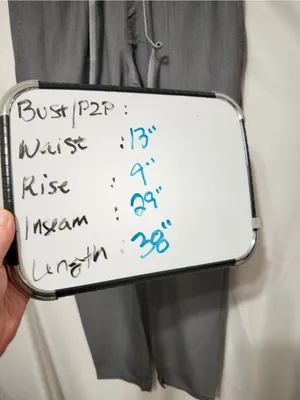 Bust/P2P :
Waist : 13"
Rise : 9"
Inseam : 29"
Length : 38"